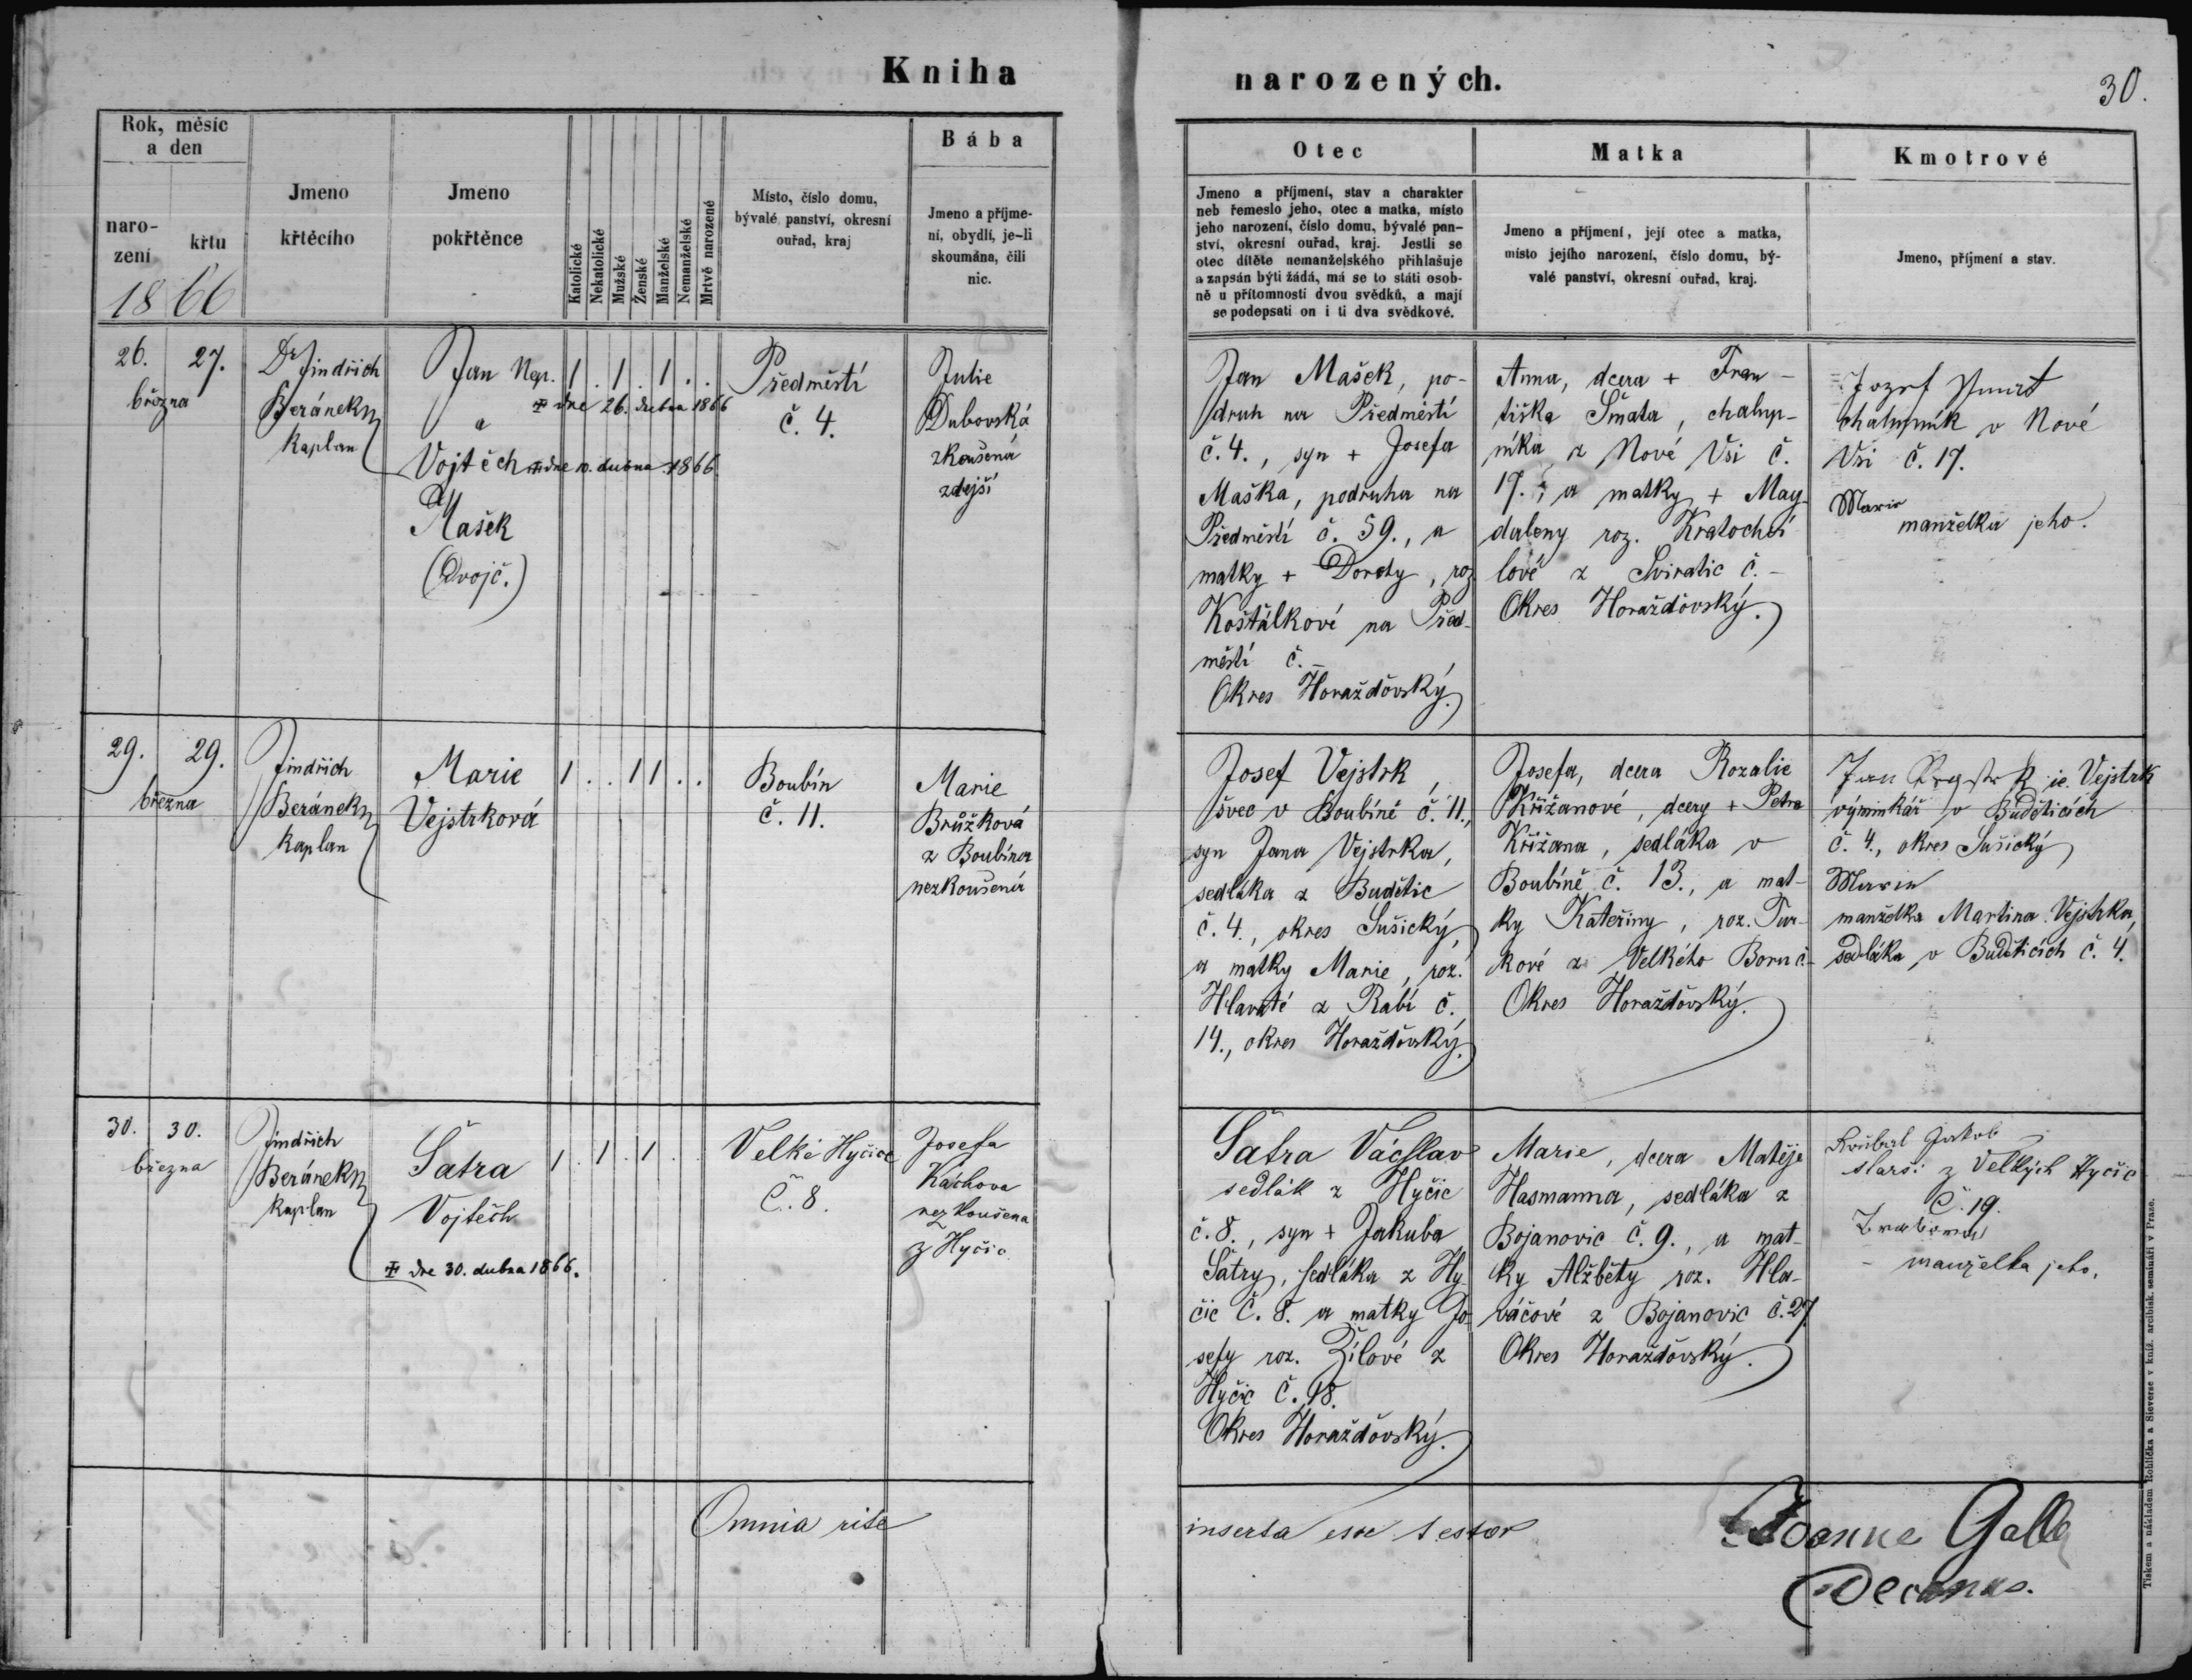 Kniha narozených.
30.
Rok, měsíc
a den
naro-
zení
křtu
1866
Jmeno
křtěcího
Jmeno
pokřtěnce
Katolické
Nekatolické
Mužské
Ženské
Manželské
Nemanželské
Mrtvě narozené
Místo, číslo domu,
bývalé panství, okresní
ouřad, kraj
Bába
Jmeno a příjme-
ní, obydlí, je-li
skoumána, čili
nic.
Otec
Jmeno a příjmení, stav a charakter
neb řemeslo jeho, otec a matka, místo
jeho narození, číslo domu, bývalé pan-
ství, okresní ouřad, kraj. Jestli se
otec dítěte nemanželského přihlašuje
a zapsán býti žádá, má se to státi osob-
ně u přítomnosti dvou svědků, a mají
se podepsati on i ti dva svědkové.
Matka
Jmeno a příjmení, její otec a matka,
místo jejího narození, číslo domu, bý-
valé panství, okresní ouřad, kraj.
Kmotrové
Jmeno, příjmení a stav.
26. 27.
března
Jindřich
Beránek
kaplan
Jan Nep.
‡ dne 26. dubna 1866
a
Vojtěch ‡ dne 10. dubna 1866.
Mašek
(Dvojč.)
1 . 1 . 1 . .
Předměstí
č. 4.
Julie
Dubovská
zkoušená
zdejší
Jan Mašek, po-
druh na Předměstí
č. 4., syn + Josefa
Maška, podruha na
Předměstí č. 59., a
matky + Doroty, roz.
Koštálkové na Před-
městí č. –
Okres Horažďovský.
Anna, dcera + Fran-
tiška Šmata, chalup-
níka z Nové Vsi č.
17., a matky + May-
daleny roz. Kratochví
lové z Sviratic č. –
Okres Horažďovský.
Jozef
chalupník v Nové
Vsi č. 17.
Marie
manželka jeho.
29. 29.
března
Jindřich
Beránek
kaplan
Marie
Vejstrková
1 . . 1 1 . .
Boubín
č. 11.
Marie
Brůžková
z Boubína
nezkoušená
Josef Vejstrk,
švec v Boubíně č. 11.,
syn Jana Vejstrka,
sedláka z Budětic
č. 4., okres Sušický,
a matky Marie, roz.
Hlavaté z Rabí č.
14., okres Horažďovský.
Josefa, dcera Rozalie
Křižanové, dcery + Petra
Křižana, sedláka v
Boubíně č. 13., a mat-
ky Kateřiny, roz. Tur-
kové z Velkého Boru č. –
Okres Horažďovský.
Jan Vejstrk
výminkář v Buděticích
č. 4., okres Sušický
Marie
manželka Martina Vejstrka,
sedláka v Buděticích č. 4.
30. 30.
března
Jindřich
Beránek
kaplan
Šatra
Vojtěch
‡ dne 30. dubna 1866.
1 . 1 . 1 . .
Velké Hyčice
Č. 8.
Josefa
Káchova
nezkoušena
z Hyčic
Šatra Václav
sedlák z Hyčic
č. 8., syn + Jakuba
Šatry, sedláka z Hy-
čic Č. 8. a matky Jo-
sefy roz. Žílové z
Hyčic Č. 18.
Okres Horažďovský.
Marie, dcera Matěje
Hasmanna, sedláka z
Bojanovic č. 9., a mat-
ky Alžběty roz. Hla-
váčové z Bojanovic č. 27
Okres Horažďovský.
Jakob
starší z Velkých Hyčic
Č. 19.
manželka jeho.
Omnia rite inserta esse testor
Joanne Galle
Decanus.
Tiskem a nákladem Rohlíčka a Sieverse v kníž. arcibisk. semináři v Praze.